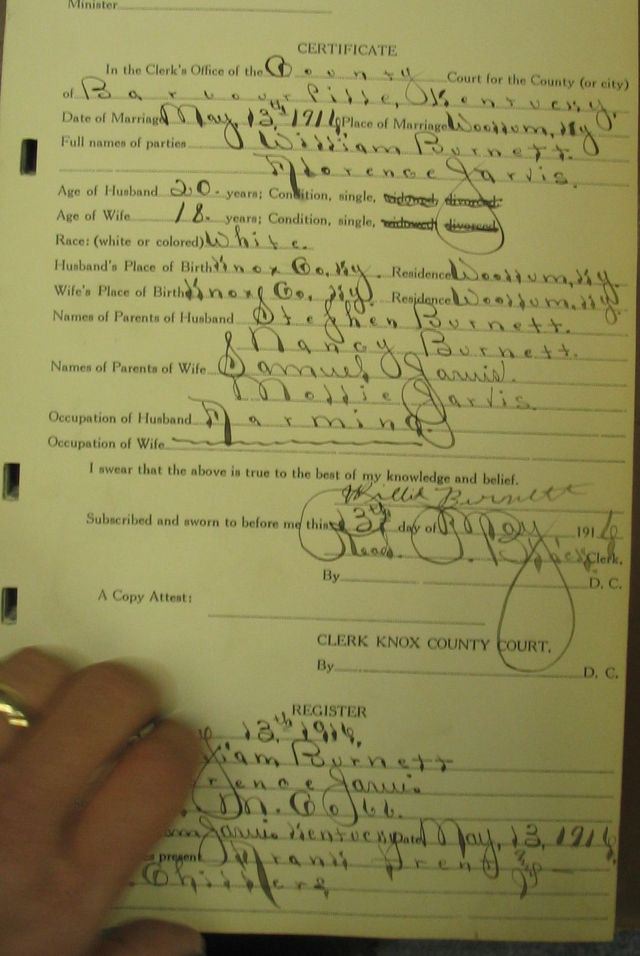 Minister
CERTIFICATE
In the Clerk's Office of the County Court for the County (or city)
of Barbourville, Kentucky.
Date of Marriage May, 13th 1916 Place of Marriage Woollum, Ky
Full names of parties William Burnett.
Florence Jarvis.
Age of Husband 20. years; Condition, single, widowed, divorced.
Age of Wife 18. years; Condition, single, widowed, divorced
Race: (white or colored) White.
Husband's Place of Birth Knox Co, Ky. Residence Woollum, Ky.
Wife's Place of Birth Knox Co, Ky. Residence Woollum, Ky.
Names of Parents of Husband Stephen Burnett.
Nancy Burnett.
Names of Parents of Wife Samuel Jarvis.
Mollie Jarvis
Occupation of Husband Farming.
Occupation of Wife
I swear that the above is true to the best of my knowledge and belief.
Willie Burnett
Subscribed and sworn to before me this 13th day of May 1916
Read. P. Clerk.
By D. C.
A Copy Attest:
CLERK KNOX COUNTY COURT.
By D. C.
REGISTER
13th 1916.
iam Burnett
rence Jarvis
M. Cobb.
am Jarvis Kentucky Date May, 13, 1916
present Frank